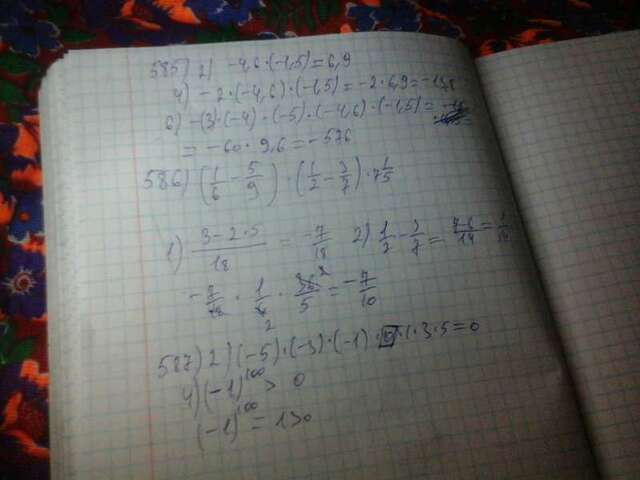 585) 2) -4,6·(-1,5)=6,9
4) -2·(-4,6)·(-1,5)=-2·6,9=-13,8
6) -(3·(-4)·(-5)·(-4,6)·(-1,5)=
=-60·9,6=-576
586) (1/6-5/9)·(1/2-3/7)·7 1/5
1) 3-2·5/18 = -7/18 2) 1/2-3/7=7-6/14=1/14
-7/18·1/14·36/5=-7/10
587) 2) (-5)·(-3)·(-1)·0·1·3·5=0
4) (-1)^100 > 0
(-1)^100 = 1>0